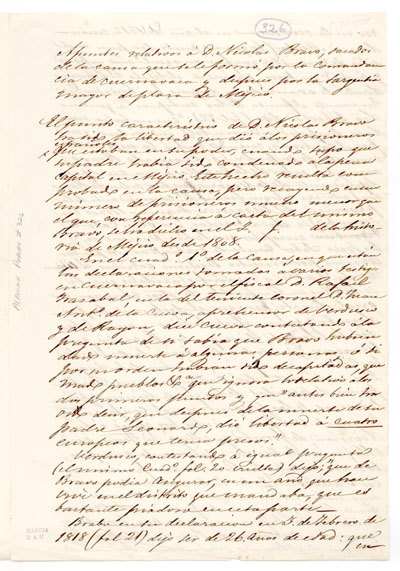 326
Apuntes relativos a D. Nicolas Bravo, sacados
de la causa que se le formó por la Comandan-
cia de Cuernavaca y despues por la Sargentia
mayor de plaza de Mejico.
El punto caracteristico de D. Nicolas Bravo
ha sido la libertad que dió á los prisioneros
españoles
que estaban en su poder, cuando supo que
su padre habia sido condenado á la pena
capital en Mejico. Este hecho resulta com-
probado en la causa, pero recayendo en un
número de prisioneros mucho menor que
el que, con referencia á carta del mismo
Bravo se ha dicho en el t. f. de la histo-
ria de Mejico desde 1808.
En el cuadº 1º de la causa, en que están
las declaraciones tomadas á varios testigos
en Cuernavaca por el fiscal D. Rafael
Irasabal, en la del teniente coronel D.
Antº de la Cueva, aprehensor de Verdusco
y de Rayon, dice Cueva contestando á la
pregunta de si sabia que Bravo hubiera
dado muerte á algunas personas, ó si
por su orden habian sido decapitadas, que-
mado pueblos &ª que "ignora lo relativo á los
dos primeros puntos y que antes bien ha
oido decir, que despues de la muerte de su
padre Leonardo, dió libertad á cuatro
europeos que tenia presos."
Verdusco, contestando á igual pregunta
(el mismo Cuadº fol. 20 vuelta) dijo, "que de
Bravo podia asegurar, en un año que hace
vive en el distrito que mandaba, que es
bastante piadoso en esta parte."
Bravo en su declaracion en 5 de Febrero de
1818 (fol 21) dijo ser de 26 años de edad: que
en
GARCIA